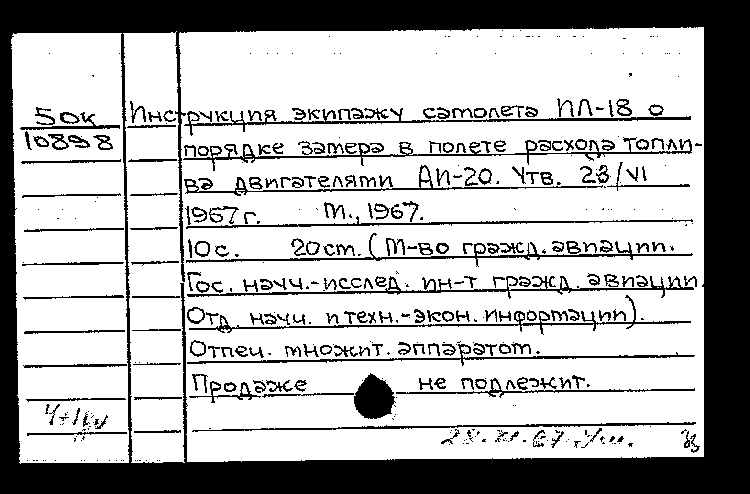 50к Инструкция экипажу самолета ИЛ-18 о
10898 порядке замера в полете расхода топли-
ва двигателями АИ-20. Утв. 23/VI
1967г. М., 1967.
10с. 20см. (М-во гражд. авиации.
Гос. научн.-исслед. ин-т гражд. авиации.
Отд. научн. и техн.-экон. информации).
Отпеч. множит. аппаратом.
Продаже не подлежит.